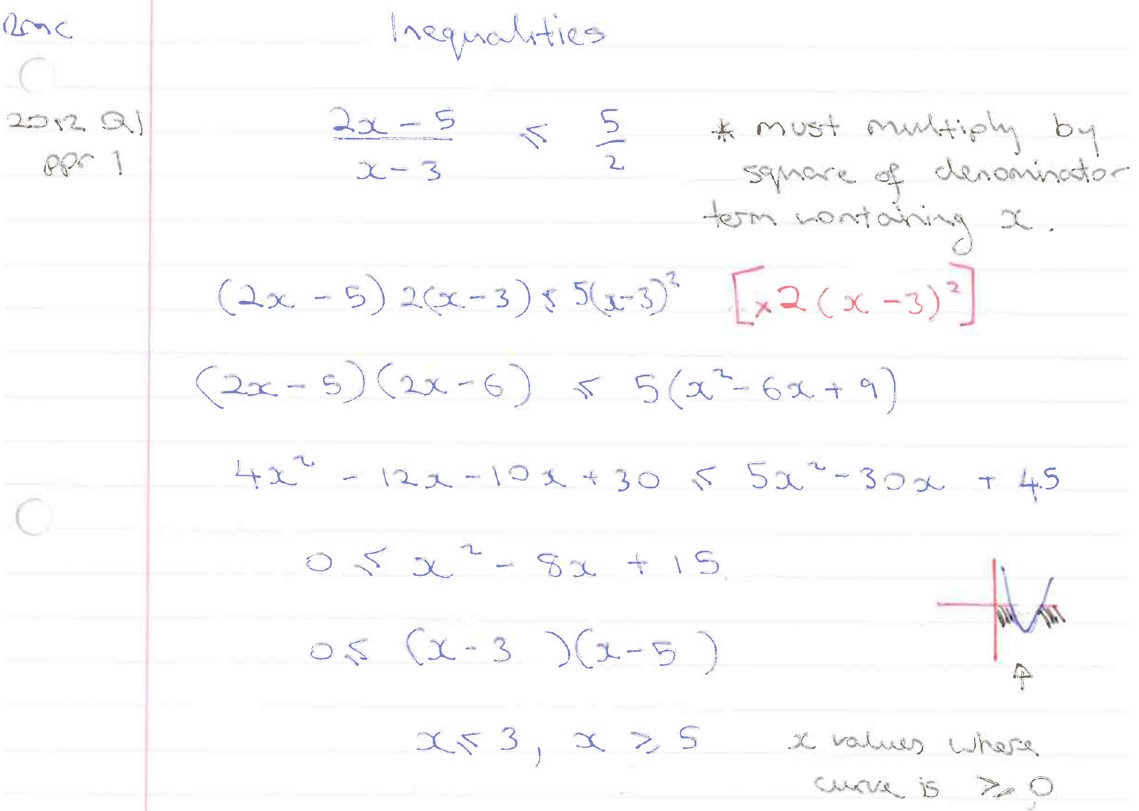 Rmc
Inequalities
2012 Q1
ppr 1
(2x - 5)/(x - 3) ≤ 5/2
* must multiply by
square of denominator
term containing x.
(2x - 5) 2(x - 3) ≤ 5(x-3)² [×2(x - 3)²]
(2x - 5)(2x - 6) ≤ 5(x² - 6x + 9)
4x² - 12x - 10x + 30 ≤ 5x² - 30x + 45
0 ≤ x² - 8x + 15
0 ≤ (x - 3 )(x - 5 )
x ≤ 3, x ≥ 5
x values where
curve is ≥ 0